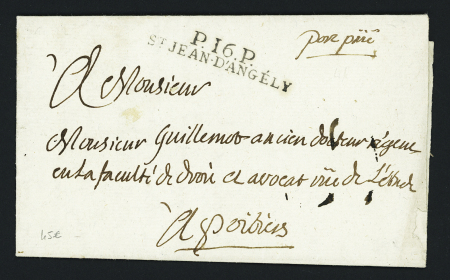 P.16.P.
ST JEAN-D'ANGÉLY
port paié
A Monsieur
Monsieur Guillemot ancien docteur régent
en La faculté de droit et avocat rüe de L'étude
A Poitiers
45€